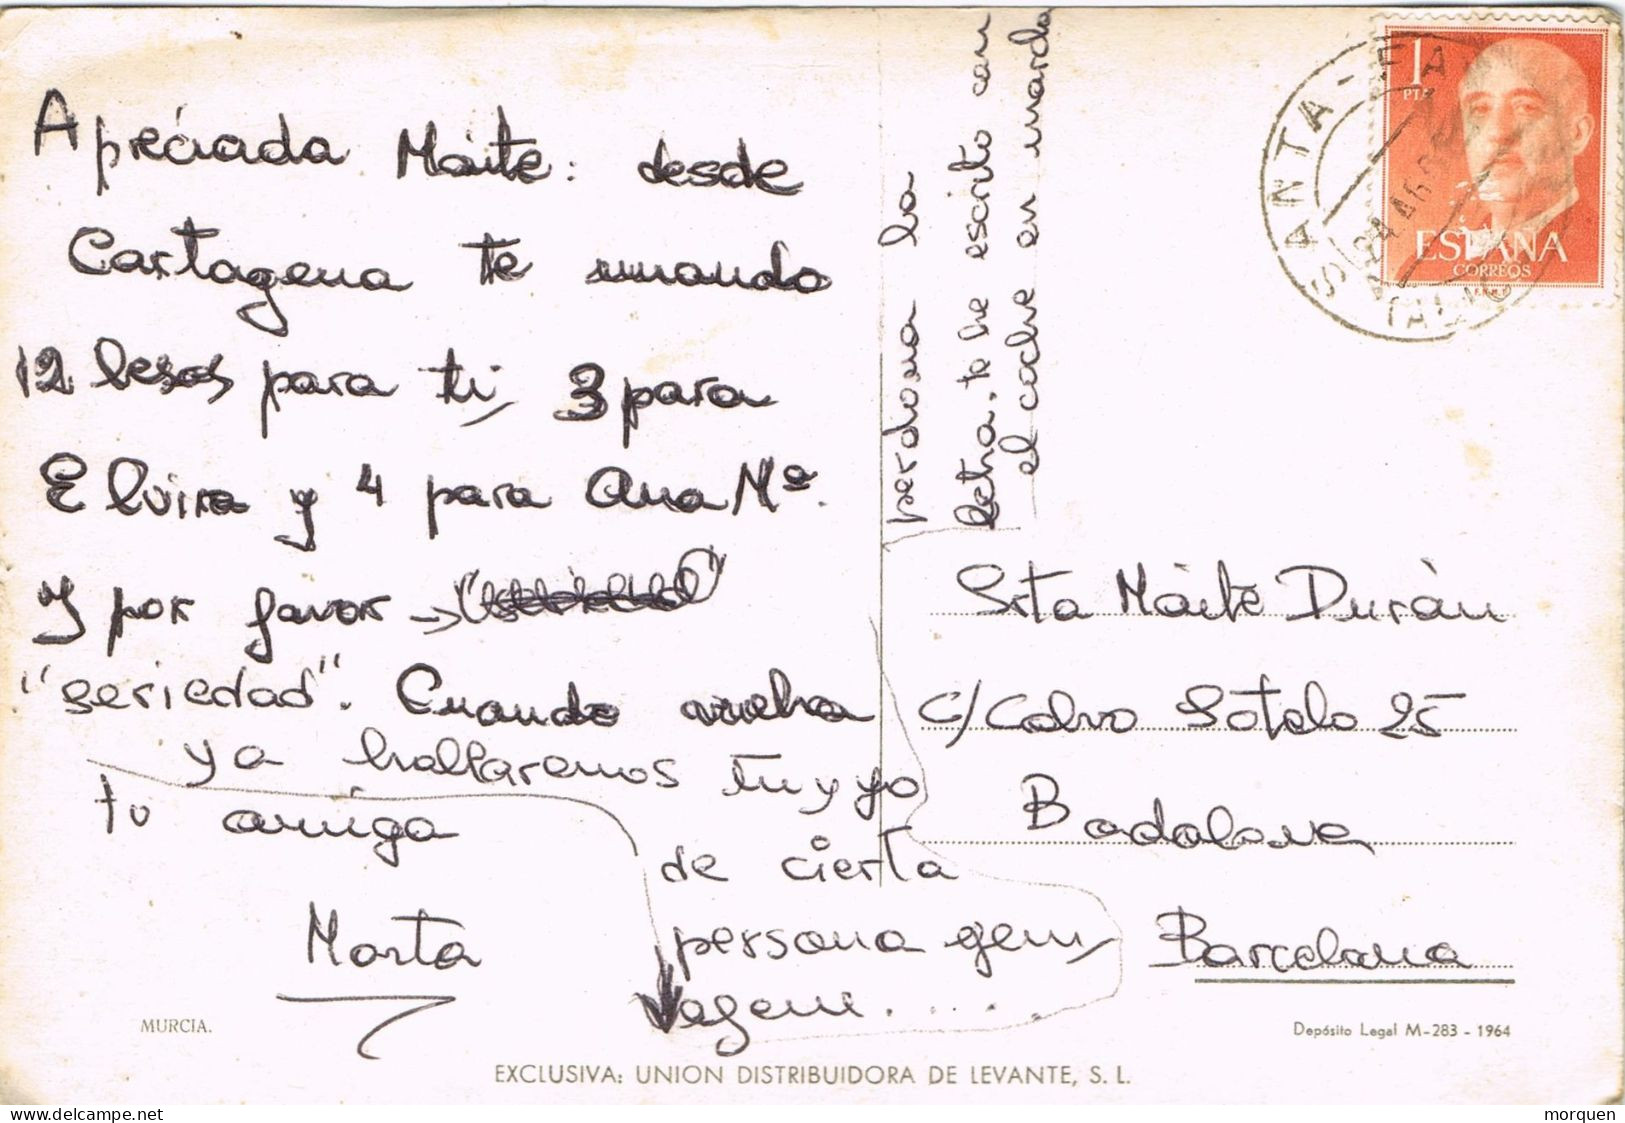 Apreciada Máite: desde
Cartagena te mando
12 besos para ti, 3 para
Elvira y 4 para Ana Mª.
Y por favor →
"seriedad". Cuando vuelva
ya hallaremos tu y yo
de cierta
persona gem,
tu amiga
Marta
perdona la
letra, te he escrito con
el coche en marcha
Srta Máite Durán
C/ Calvo Sotelo 25
Badalona
Barcelona
1
PTS
ESPAÑA
CORREOS
SANTA-
MURCIA.
Depósito Legal M-283-1964
EXCLUSIVA: UNION DISTRIBUIDORA DE LEVANTE, S. L.
morquen